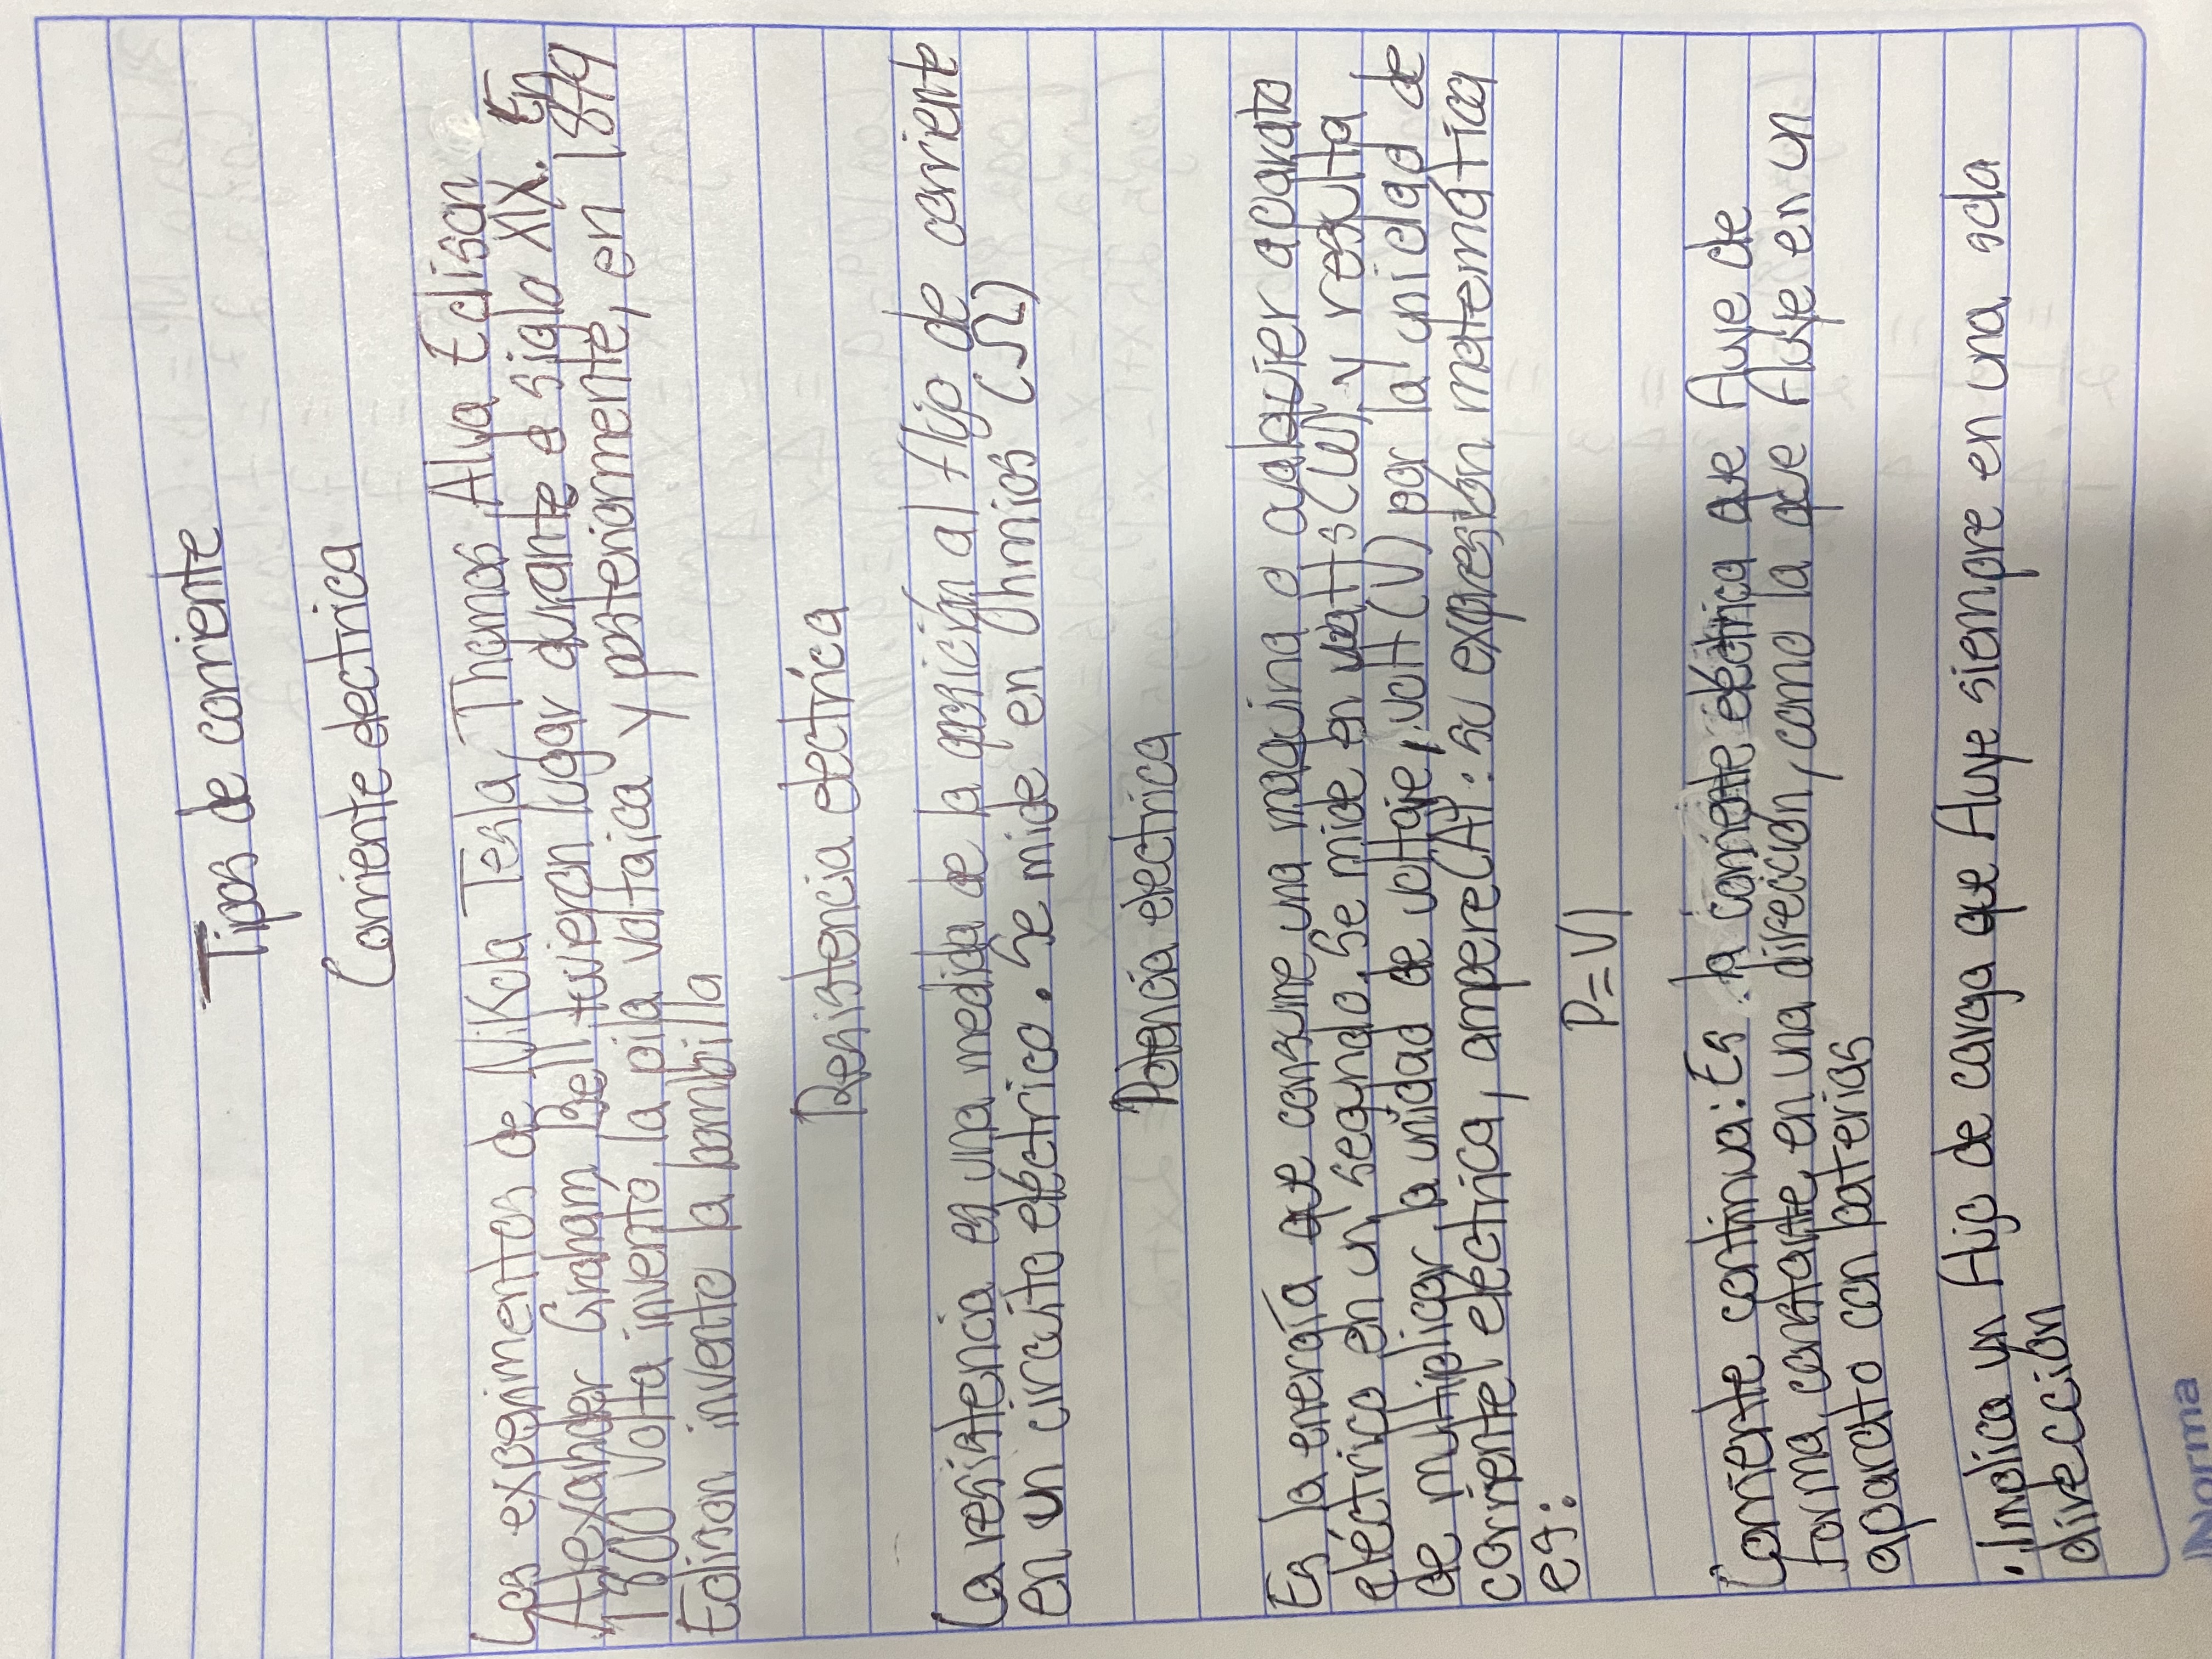 Tipos de corriente
Corriente electrica
Los experimentos de Nikola Tesla, Thomas Alva Edison
Alexander Graham Bell tuvieron lugar durante el siglo XIX. En
1800 Volta invento la pila voltaica y posteriormente, en 1879
Edison invento la bombilla
Resistencia electrica
La resistencia es una medida de la oposición al flujo de corriente
en un circuito eléctrico. Se mide en Ohmios (Ω)
Potencia electrica
Es la energía que consume una maquina o cualquier aparato
eléctrico en un segundo. Se mide en watts (W) y resulta
de multiplicar la unidad de voltaje, volt (V) por la unidad de
corriente electrica, ampere (A). su expresión matemática
es:
P=VI
Corriente continua: Es la corriente eléctrica que fluye de
forma constante en una dirección, como la que fluye en un
aparato con baterias
• Implica un flujo de carga que fluye siempre en una sola
dirección
Norma